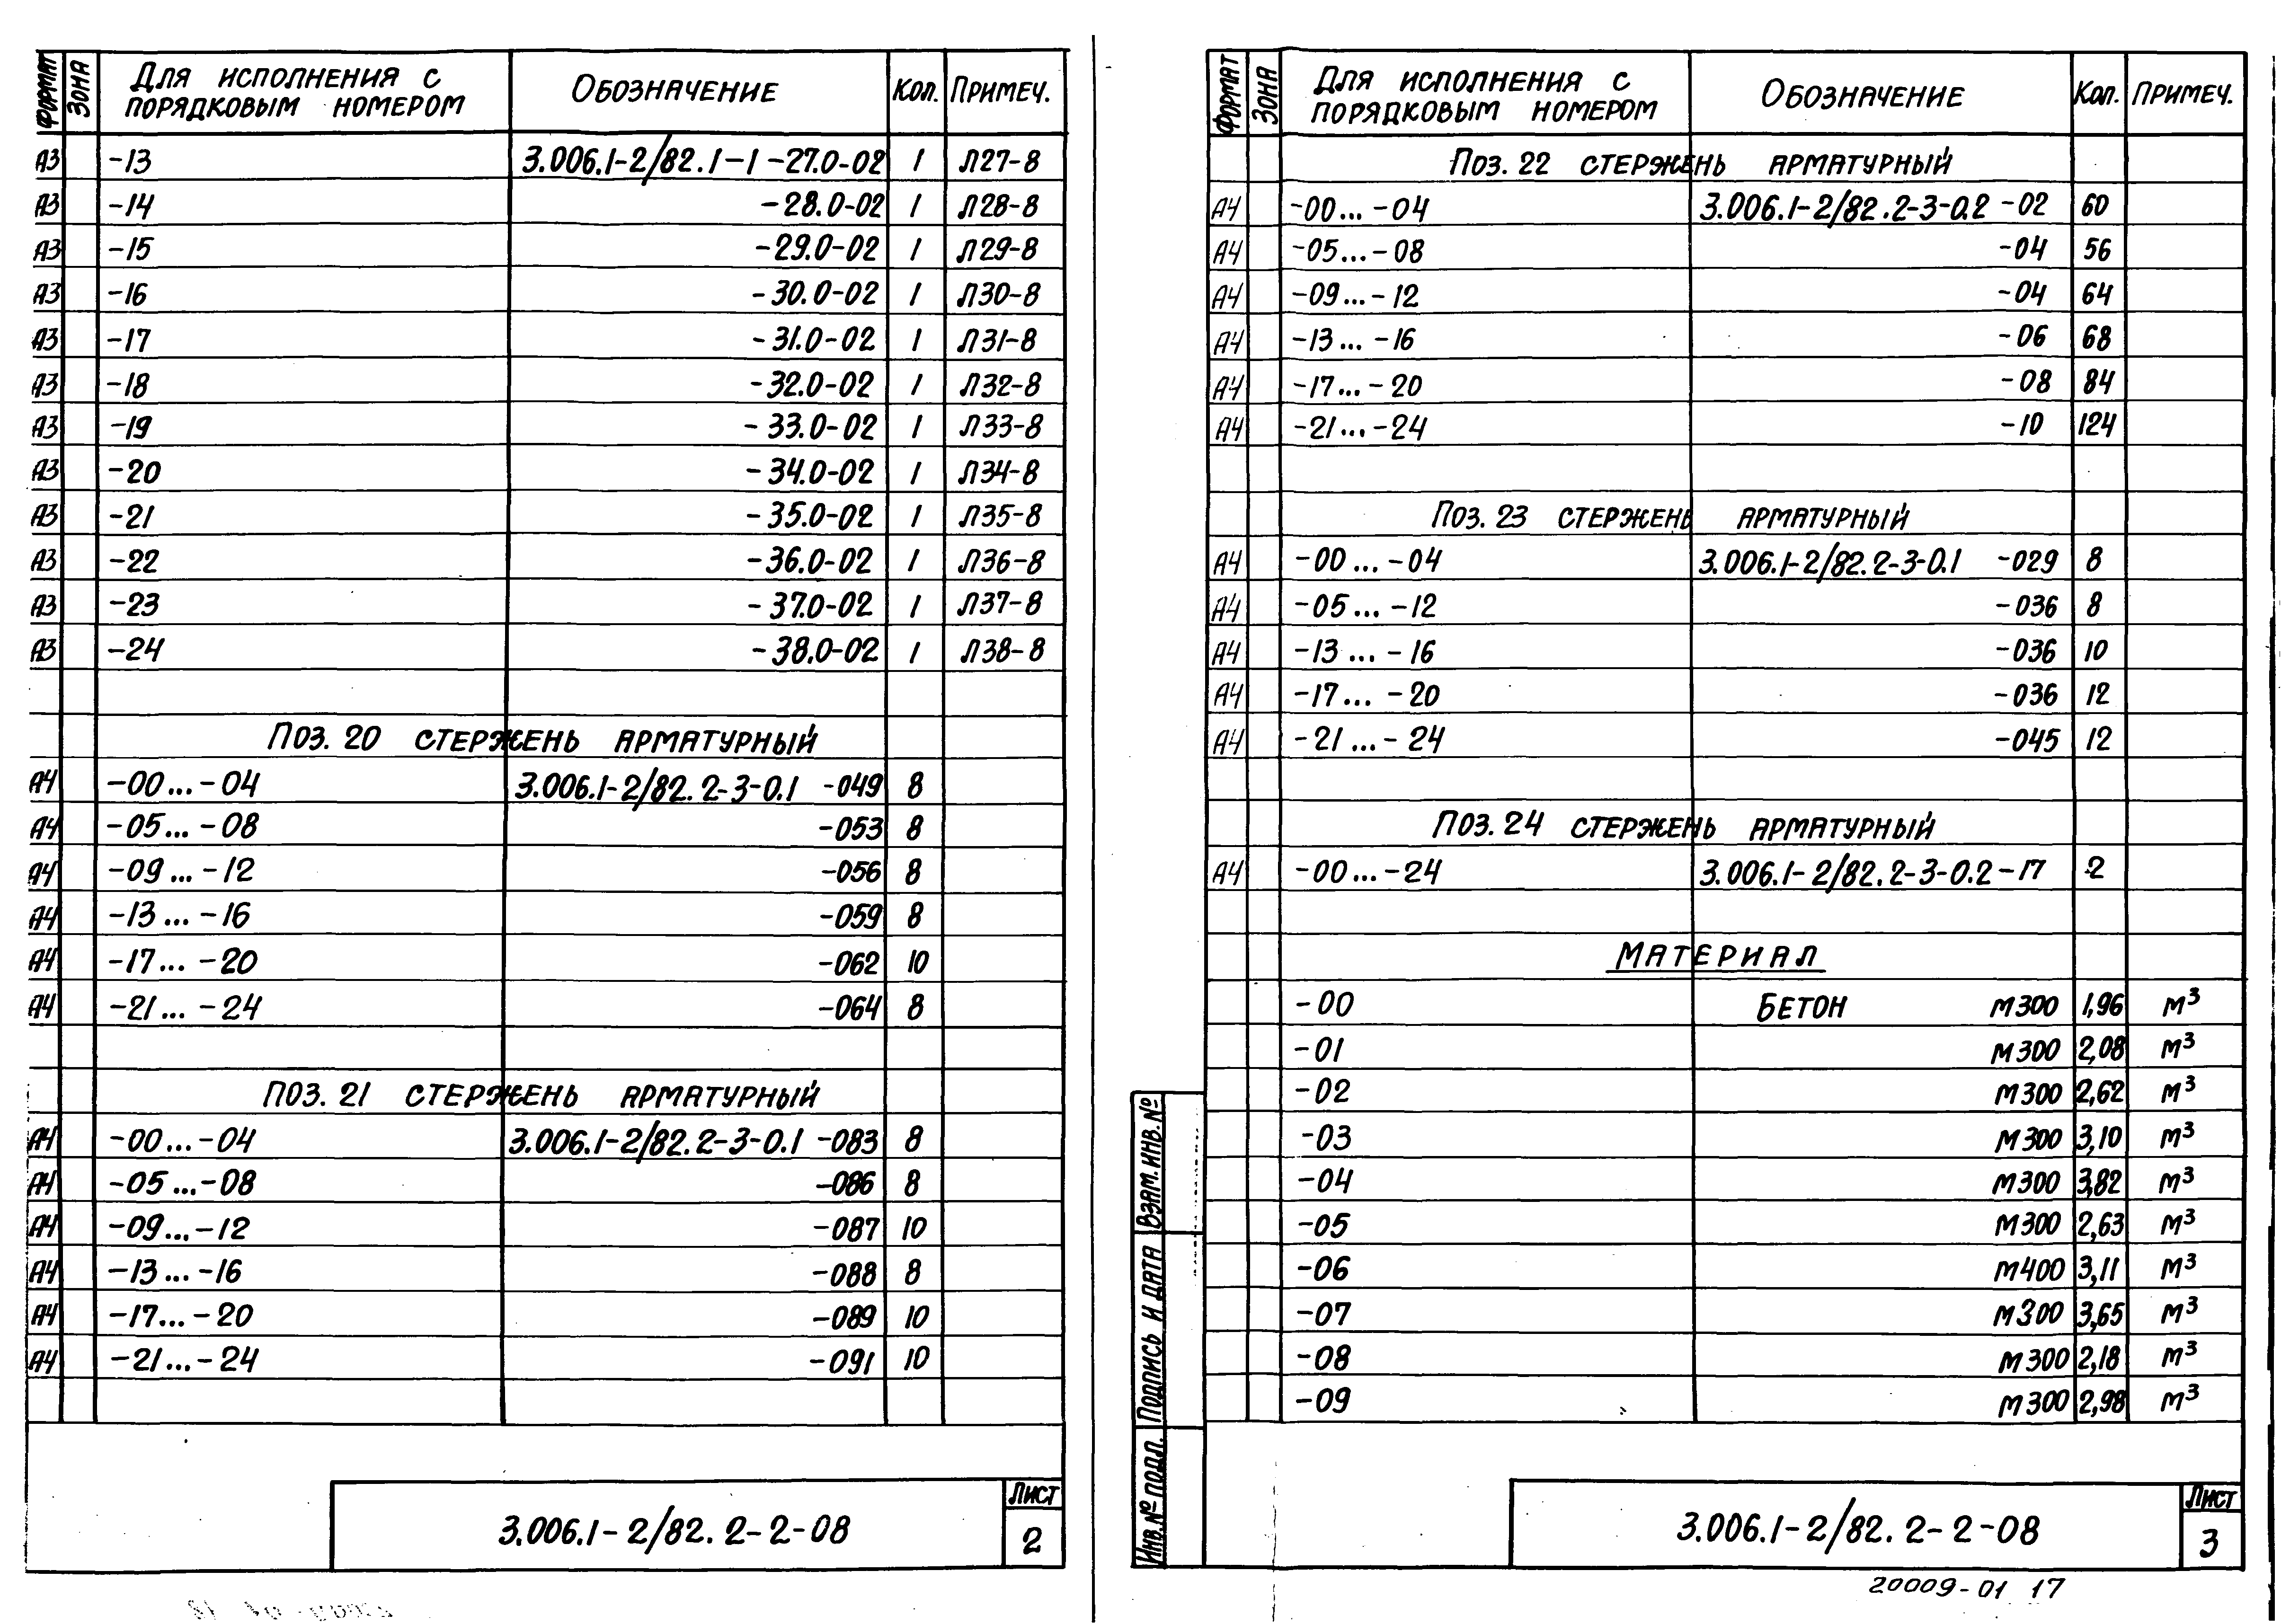 Формат Зона Для исполнения с порядковым номером Обозначение Кол. Примеч.
А3 -13 3.006.1-2/82.1-1-27.0-02 1 Л27-8
А3 -14 -28.0-02 1 Л28-8
А3 -15 -29.0-02 1 Л29-8
А3 -16 -30.0-02 1 Л30-8
А3 -17 -31.0-02 1 Л31-8
А3 -18 -32.0-02 1 Л32-8
А3 -19 -33.0-02 1 Л33-8
А3 -20 -34.0-02 1 Л34-8
А3 -21 -35.0-02 1 Л35-8
А3 -22 -36.0-02 1 Л36-8
А3 -23 -37.0-02 1 Л37-8
А3 -24 -38.0-02 1 Л38-8
Поз. 20 стержень арматурный
А4 -00...-04 3.006.1-2/82.2-3-0.1 -049 8
А4 -05...-08 -053 8
А4 -09...-12 -056 8
А4 -13...-16 -059 8
А4 -17...-20 -062 10
А4 -21...-24 -064 8
Поз. 21 стержень арматурный
А4 -00...-04 3.006.1-2/82.2-3-0.1 -083 8
А4 -05...-08 -086 8
А4 -09...-12 -087 10
А4 -13...-16 -088 8
А4 -17...-20 -089 10
А4 -21...-24 -091 10
3.006.1-2/82.2-2-08
Лист
2
Формат Зона Для исполнения с порядковым номером Обозначение Кол. Примеч.
Поз. 22 стержень арматурный
А4 -00...-04 3.006.1-2/82.2-3-0.2 -02 60
А4 -05...-08 -04 56
А4 -09...-12 -04 64
А4 -13...-16 -06 68
А4 -17...-20 -08 84
А4 -21...-24 -10 124
Поз. 23 стержень арматурный
А4 -00...-04 3.006.1-2/82.2-3-0.1 -029 8
А4 -05...-12 -036 8
А4 -13...-16 -036 10
А4 -17...-20 -036 12
А4 -21...-24 -045 12
Поз. 24 стержень арматурный
А4 -00...-24 3.006.1-2/82.2-3-0.2-17 2
Материал
-00 Бетон М300 1,96 м³
-01 М300 2,08 м³
-02 М300 2,62 м³
-03 М300 3,10 м³
-04 М300 3,82 м³
-05 М300 2,63 м³
-06 М400 3,11 м³
-07 М300 3,65 м³
-08 М300 2,18 м³
-09 М300 2,98 м³
Взам. инв. №
Подпись и дата
Инв. № подл.
3.006.1-2/82.2-2-08
Лист
3
20009-01 17